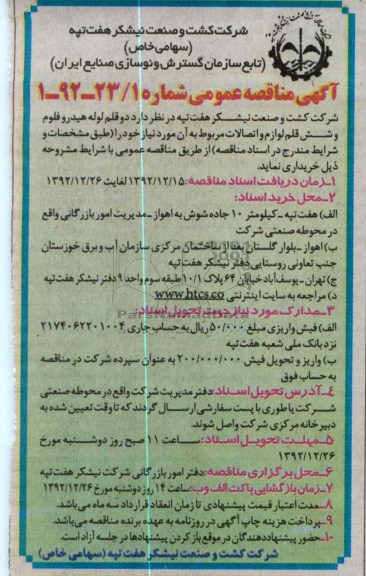 شرکت کشت و صنعت نیشکر هفت تپه
(سهامی خاص)
(تابع سازمان گسترش و نوسازی صنایع ایران)
آگهی مناقصه عمومی شماره ۲۳/۱-۹۲-۱
شرکت کشت و صنعت نیشکر هفت تپه در نظر دارد دو قلم لوله هیدروفلوم
و شش قلم لوازم و اتصالات مربوط به آن مورد نیاز خود را (طبق مشخصات و
شرایط مندرج در اسناد مناقصه) از طریق مناقصه عمومی با شرایط مشروحه
ذیل خریداری نماید.
۱-زمان دریافت اسناد مناقصه: ۱۳۹۲/۱۲/۱۵ لغایت ۱۳۹۲/۱۲/۲۶
۲-محل خرید اسناد:
الف) هفت تپه - کیلومتر ۱۰ جاده شوش به اهواز - مدیریت امور بازرگانی واقع
در محوطه صنعتی شرکت
ب) اهواز - بلوار گلستان بعد از ساختمان مرکزی سازمان آب و برق خوزستان
جنب تعاونی روستایی دفتر نیشکر هفت تپه
ج) تهران - یوسف آباد خیابان ۶۴ پلاک ۱۰/۱ طبقه سوم واحد ۹ دفتر نیشکر هفت تپه
د) مراجعه به سایت اینترنتی www.htcs.co
۳-مدارک مورد نیاز جهت تحویل اسناد:
الف) فیش واریزی مبلغ ۵۰/۰۰۰ ریال به حساب جاری ۲۱۷۴۰۶۲۲۰۱۰۰۴
نزد بانک ملی شعبه هفت تپه
ب) واریز و تحویل فیش ۲۰۰/۰۰۰/۰۰۰ به عنوان سپرده شرکت در مناقصه
به حساب فوق
۴-آدرس تحویل اسناد: دفتر مدیریت شرکت واقع در محوطه صنعتی
شرکت یا طوری با پست سفارشی ارسال گردند که تا وقت تعیین شده به
دبیرخانه مرکزی شرکت واصل شوند.
۵-مهلت تحویل اسناد: ساعت ۱۱ صبح روز دوشنبه مورخ
۱۳۹۲/۱۲/۲۶
۶-محل برگزاری مناقصه: دفتر امور بازرگانی شرکت نیشکر هفت تپه
۷-زمان بازگشایی پاکت الف و ب: ساعت ۱۴ روز دوشنبه مورخ ۱۳۹۲/۱۲/۲۶
۸-مدت اعتبار قیمت پیشنهادی تا زمان انعقاد قرارداد سه ماه می باشد.
۹-پرداخت هزینه چاپ آگهی در روزنامه به عهده برنده مناقصه می باشد.
۱۰-حضور پیشنهاددهندگان در موقع باز کردن پیشنهادها در جلسه آزاد است.
شرکت کشت و صنعت نیشکر هفت تپه (سهامی خاص)